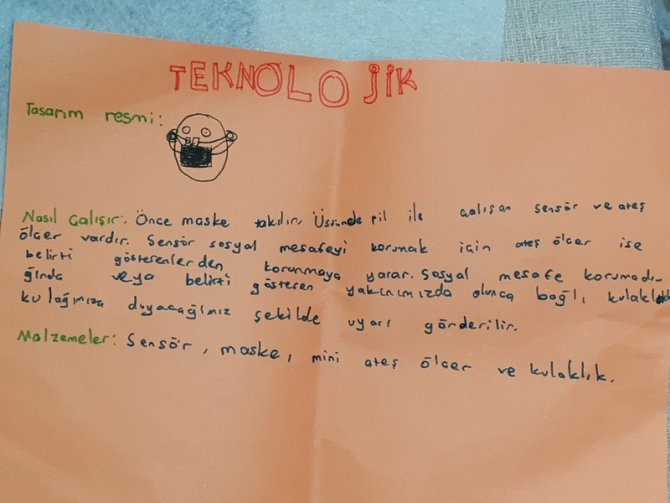 TEKNOLOJİK
Tasarım resmi:
Nasıl Çalışır: Önce maske takılır. Üstünde pil ile çalışan sensör ve ateş
ölçer vardır. Sensör sosyal mesafeyi korumak için ateş ölçer ise
belirti gösterenlerden korunmaya yarar. Sosyal mesafe korumadı-
ğında veya belirti gösteren yakınımızda olunca bağlı kulaklık
kulağımıza duyacağımız şekilde uyarı görderilir.
Malzemeler: Sensör, maske, mini ateş ölçer ve kulaklık.